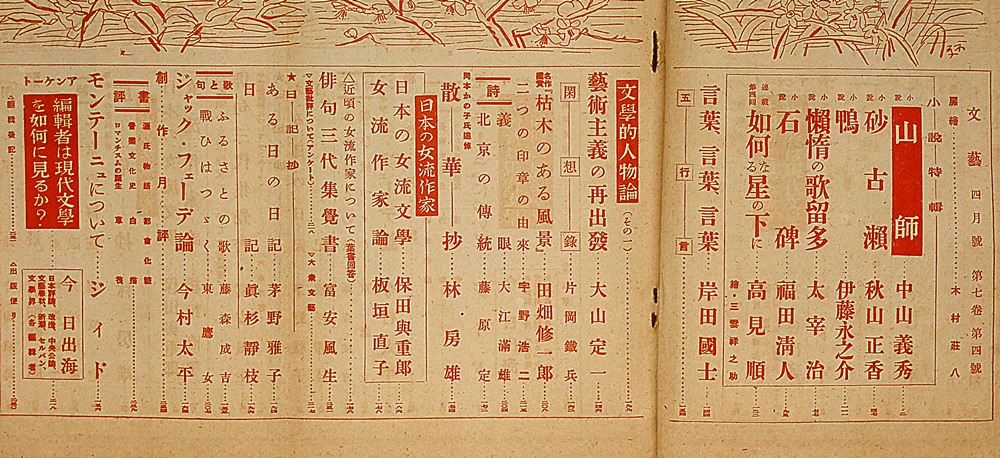 文藝 四月號 第七卷 第四號
扉繪 木村莊八
小說特輯
小說 山師 中山義秀
小說 砂古瀬 秋山正香
小說 鴨 伊藤永之介
小說 懶惰の歌留多 太宰治
小說 石碑 福田淸人
連載第四囘 如何なる星の下に 高見順
繪・三雲祥之助
言葉、言葉、言葉 岸田國士
五行言
文學的人物論(その一)
藝術主義の再出發 大山定一
閑想錄 片岡鐵兵
名作鑑賞 『枯木のある風景』 田畑修一郎
二つの印章の由來 宇野浩二
詩
義眼 大江滿雄
北京の傳統 藤原定
岡本かの子氏追悼
散華抄 林房雄
日本の女流作家
日本の女流文學 保田與重郎
女流作家論 板垣直子
△近頃の女流作家について(葉書回答)
俳句三代集覺書 富安風生
▽文藝批評について(アンケート) ▽大衆文藝
★日記抄
ある日の日記 茅野雅子
日記 眞杉靜枝
歌と句
ふるさとの歌 藤森成吉
戰ひはつゞく 東鷹女
ジャック・フェーデ論 今村太平
創作月評
書評
源氏物語 都會化粧
普魯文化史 白指
ロマンチスムの誕生 草筏
モンテーニュについて ジイド
アンケート
編輯者は現代文學を如何に見るか?
今日出海
日本評論、改造、中央公論、文藝春秋、新潮、セルパン、文學界(各編輯者)
△編輯後記
△出版便り